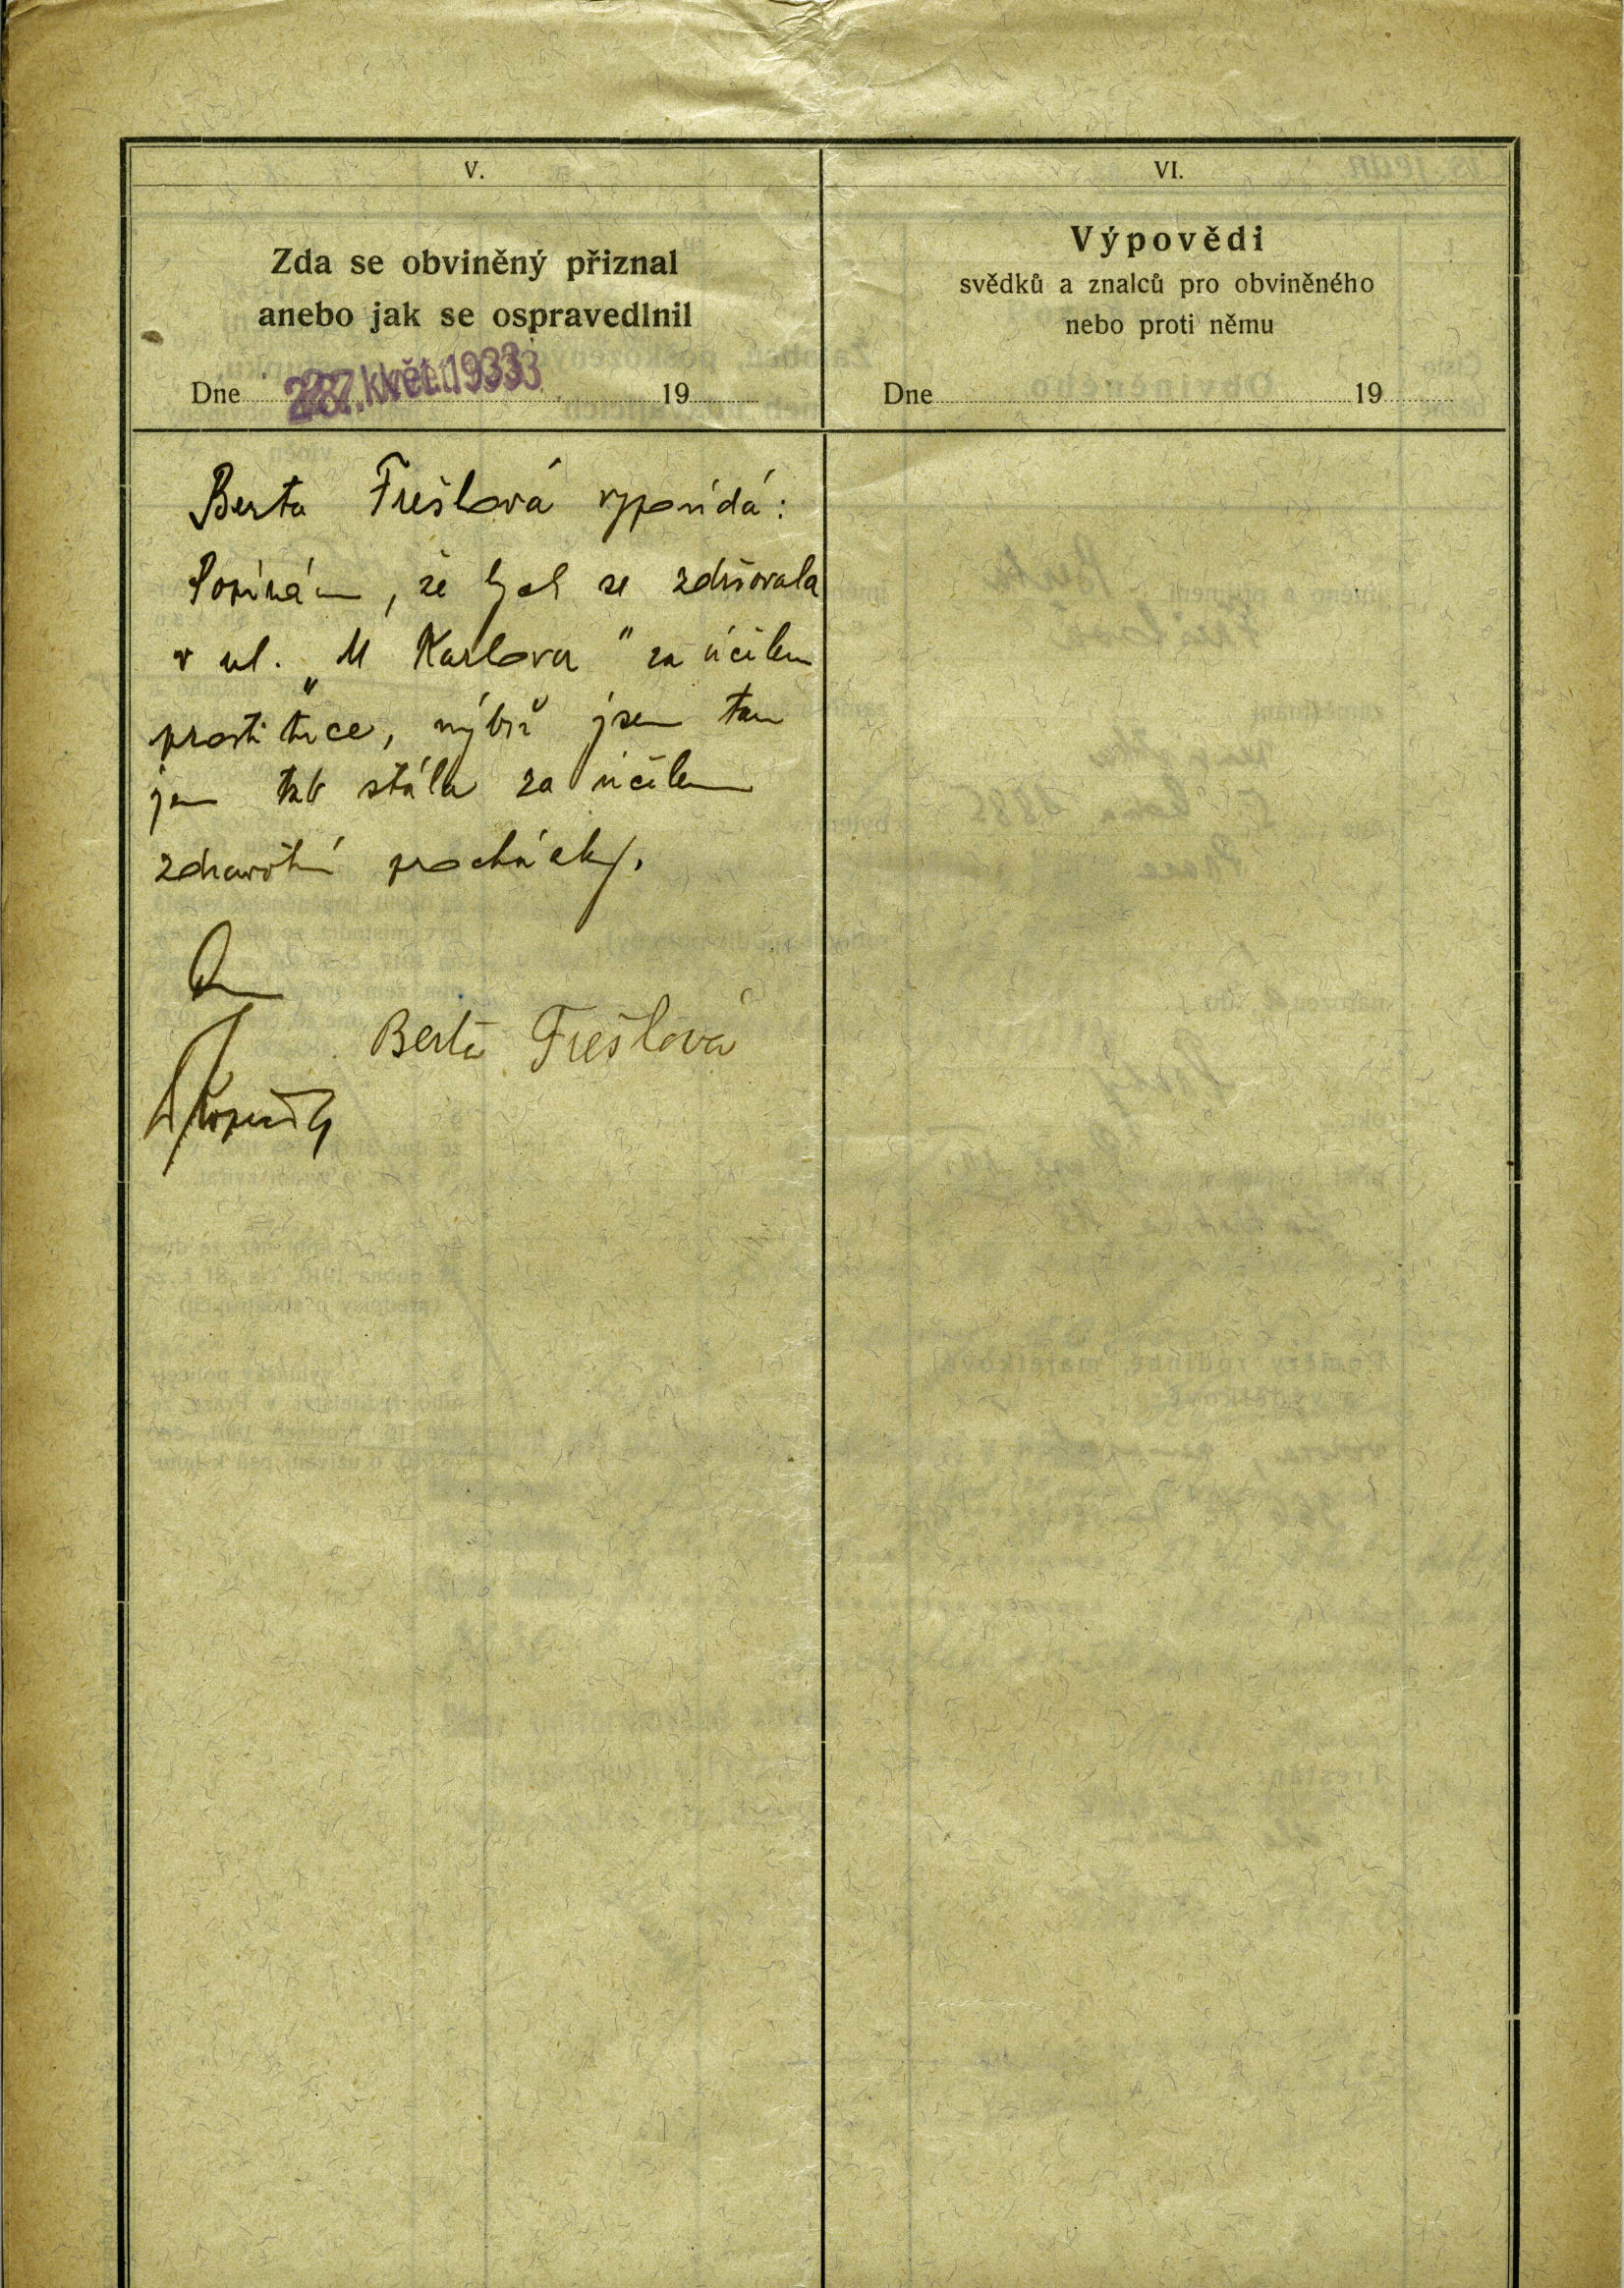 V.
Zda se obviněný přiznal
anebo jak se ospravedlnil
Dne 27. květ. 1933 19
Berta Frešlová vypovídá:
Popírám, že bych se zdržovala
v ul. „U Karlova" za účelem
prostituce, nýbrž jsem tam
jen tak stála za účelem
zdravotní procházky.
Berta Frešlová
VI.
Výpovědi
svědků a znalců pro obviněného
nebo proti němu
Dne 19